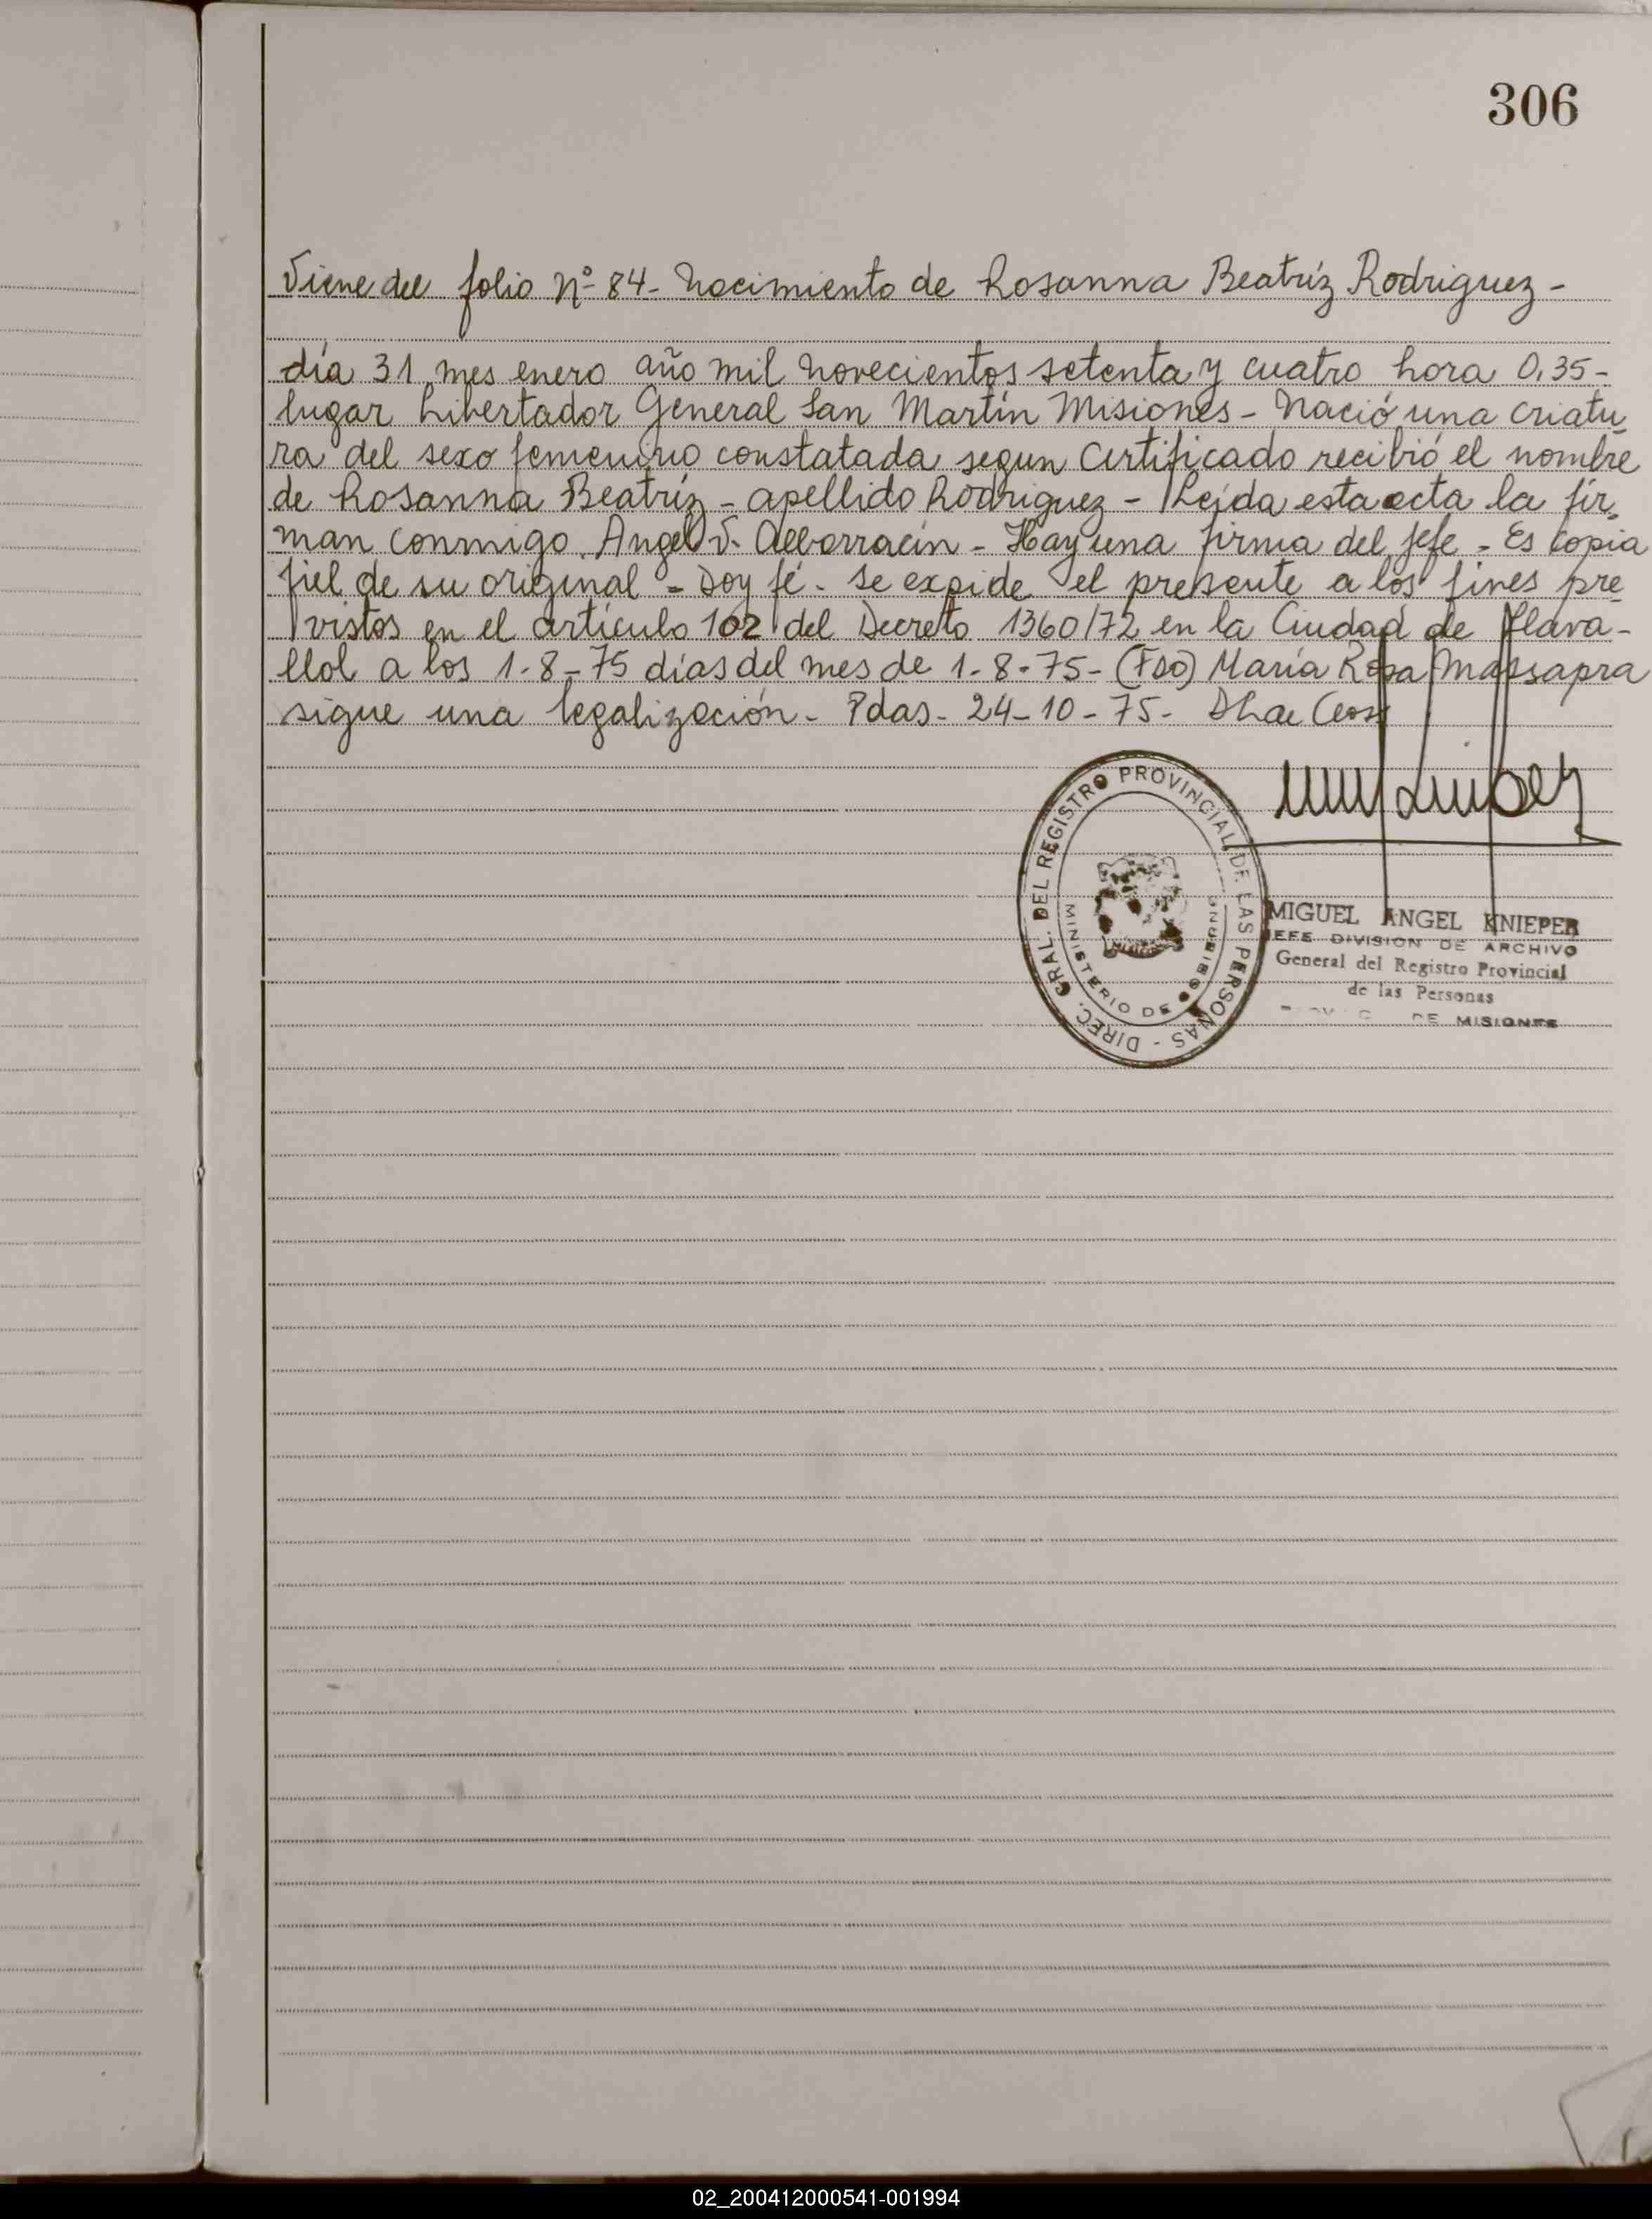 306
Viene del folio Nº 84 - Nacimiento de Rosanna Beatríz Rodriguez -
día 31 mes enero año mil novecientos setenta y cuatro hora 0,35 -
lugar Libertador General San Martín Misiones - Nació una criatu
ra del sexo femenino constatada segun Certificado recibió el nombre
de Rosanna Beatríz - apellido Rodriguez - Leída esta acta la fir
man conmigo. Angel V. Albarracín - Hay una firma del Jefe - Es copia
fiel de su original - Doy fé - Se expide el presente a los fines pre
vistos en el artículo 102 del Decreto 1360/72 en la Ciudad de Llava-
llol a los 1-8-75 días del mes de 1-8-75 - (Fdo) María Rosa Massapra
sigue una legalización - Pdas - 24-10-75 -
DIREC. GRAL. DEL REGISTRO PROVINCIAL DE LAS PERSONAS -
MINISTERIO DE
MIGUEL ANGEL KNIEPER
JEFE DIVISION DE ARCHIVO
General del Registro Provincial
de las Personas
DE MISIONES
02_200412000541-001994